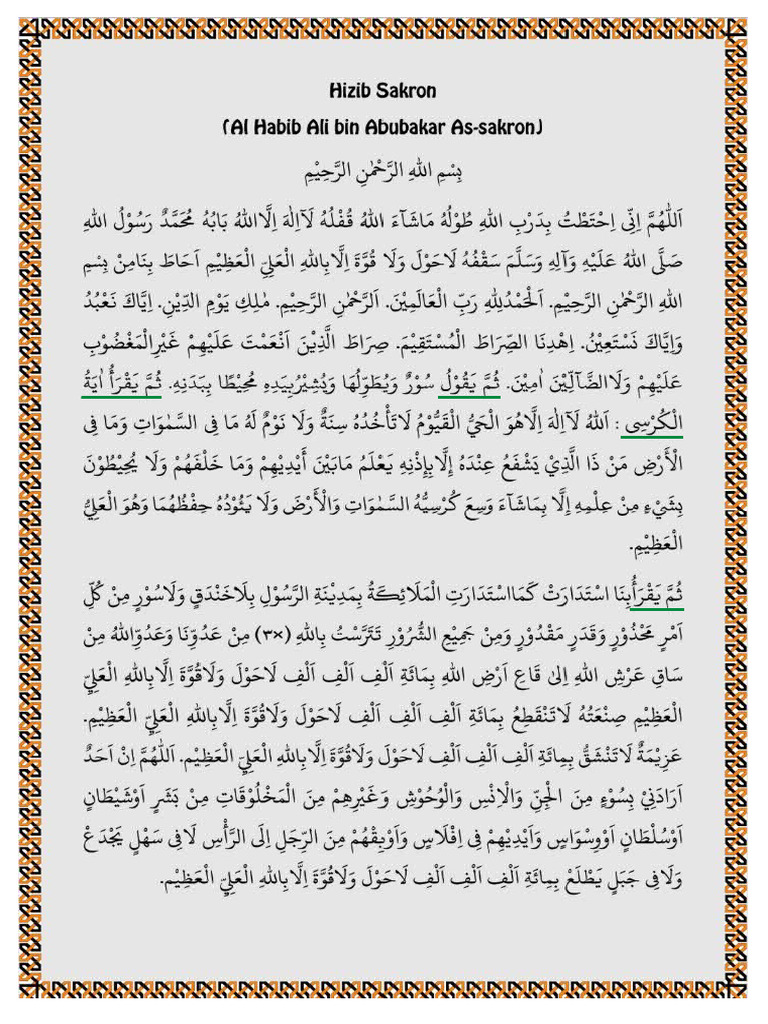 Hizib Sakron
(Al Habib Ali bin Abubakar As-sakron)
بِسْمِ اللهِ الرَّحْمٰنِ الرَّحِيْمِ
اَللّٰهُمَّ اِنِّى اِحْتَطْتُ بِدَرْبِ اللهِ طُوْلُهُ مَاشَآءَ اللهُ قُفْلُهُ لَآاِلٰهَ اِلَّااللهُ بَابُهُ مُحَمَّدٌ رَسُوْلُ اللهِ
صَلَّى اللهُ عَلَيْهِ وَآلِهِ وَسَلَّمَ سَقْفُهُ لَاحَوْلَ وَلَا قُوَّةَ اِلَّابِاللهِ الْعَلِيِّ الْعَظِيْمِ اَحَاطَ بِنَامِنْ بِسْمِ
اللهِ الرَّحْمٰنِ الرَّحِيْمِ. اَلْحَمْدُلِلهِ رَبِّ الْعَالَمِيْنَ. اَلرَّحْمٰنِ الرَّحِيْمِ. مٰلِكِ يَوْمِ الدِّيْنِ. اِيَّاكَ نَعْبُدُ
وَاِيَّاكَ نَسْتَعِيْنُ. اِهْدِنَا الصِّرَاطَ الْمُسْتَقِيْمَ. صِرَاطَ الَّذِيْنَ اَنْعَمْتَ عَلَيْهِمْ غَيْرِالْمَغْضُوْبِ
عَلَيْهِمْ وَلَاالضَّآلِّيْنَ اٰمِيْنَ. ثُمَّ يَقُوْلُ سُوْرٌ وَيُطَوِّلُهَا وَيُشِيْرُبِيَدِهِ مُحِيْطًا بِبَدَنِهِ. ثُمَّ يَقْرَأُ اٰيَةُ
الْكُرْسِى : اَللهُ لَآاِلٰهَ اِلَّاهُوَ الْحَيُّ الْقَيُّوْمُ لَاتَأْخُدُهُ سِنَةٌ وَلَا نَوْمٌ لَهُ مَا فِى السَّمٰوَاتِ وَمَا فِى
الْأَرْضِ مَنْ ذَا الَّذِيْ يَشْفَعُ عِنْدَهُ إِلَّابِإِذْنِهِ يَعْلَمُ مَابَيْنَ أَيْدِيْهِمْ وَمَا خَلْفَهُمْ وَلَا يُحِيْطُوْنَ
بِشَيْءٍ مِنْ عِلْمِهِ إِلَّا بِمَاشَآءَ وَسِعَ كُرْسِيُّهُ السَّمٰوَاتِ وَالْأَرْضَ وَلَا يَئُوْدُهُ حِفْظُهُمَا وَهُوَ الْعَلِيُّ
الْعَظِيْمِ.
ثُمَّ يَقْرَأُبِنَا اسْتَدَارَتْ كَمَااسْتَدَارَتِ الْمَلَائِكَةُ بِمَدِيْنَةِ الرَّسُوْلِ بِلَاخَنْدَقٍ وَلَاسُوْرٍ مِنْ كُلِّ
اَمْرٍ مَحْذُوْرٍ وَقَدَرٍ مَقْدُوْرٍ وَمِنْ جَمِيْعِ الشُّرُوْرِ تَتَرَّسْتُ بِاللهِ (٣×) مِنْ عَدُوِّنَا وَعَدُوِّاللهُ مِنْ
سَاقِ عَرْشِ اللهِ اِلىٰ قَاعِ اَرْضِ اللهِ بِمِائَةِ اَلْفِ اَلْفِ اَلْفِ لَاحَوْلَ وَلَاقُوَّةَ اِلَّابِاللهِ الْعَلِيِّ
الْعَظِيْمِ صِنْعَتُهُ لَاتَنْقَطِعُ بِمَائَةِ اَلْفِ اَلْفِ اَلْفِ لَاحَوْلَ وَلَاقُوَّةَ اِلَّابِاللهِ الْعَلِيِّ الْعَظِيْمِ.
عَزِيْمَةٌ لَاتَنْشَقُّ بِمِائَةِ اَلْفِ اَلْفِ اَلْفِ لَاحَوْلَ وَلَاقُوَّةَ اِلَّابِاللهِ الْعَلِيِّ الْعَظِيْمِ. اَللّٰهُمَّ اِنْ اَحَدٌ
اَرَادَنِيْ بِسُوْءٍ مِنَ الْجِنِّ وَالْاِنْسِ وَالْوُحُوْشِ وَغَيْرِهِمْ مِنَ الْمَخْلُوْقَاتِ مِنْ بَشَرٍ اَوْشَيْطَانٍ
اَوْسُلْطَانٍ اَوْوِسْوَاسٍ وَاَيْدِيْهِمْ فِى اِفْلَاسٍ وَاَوْبِقْهُمْ مِنَ الرِّجَلِ اِلَى الرَّأْسِ لَافِى سَهْلٍ يَجْدَعْ
وَلَافِى جَبَلٍ يَطْلَعْ بِمِائَةِ اَلْفِ اَلْفِ اَلْفِ لَاحَوْلَ وَلَاقُوَّةَ اِلَّابِاللهِ الْعَلِيِّ الْعَظِيْمِ.